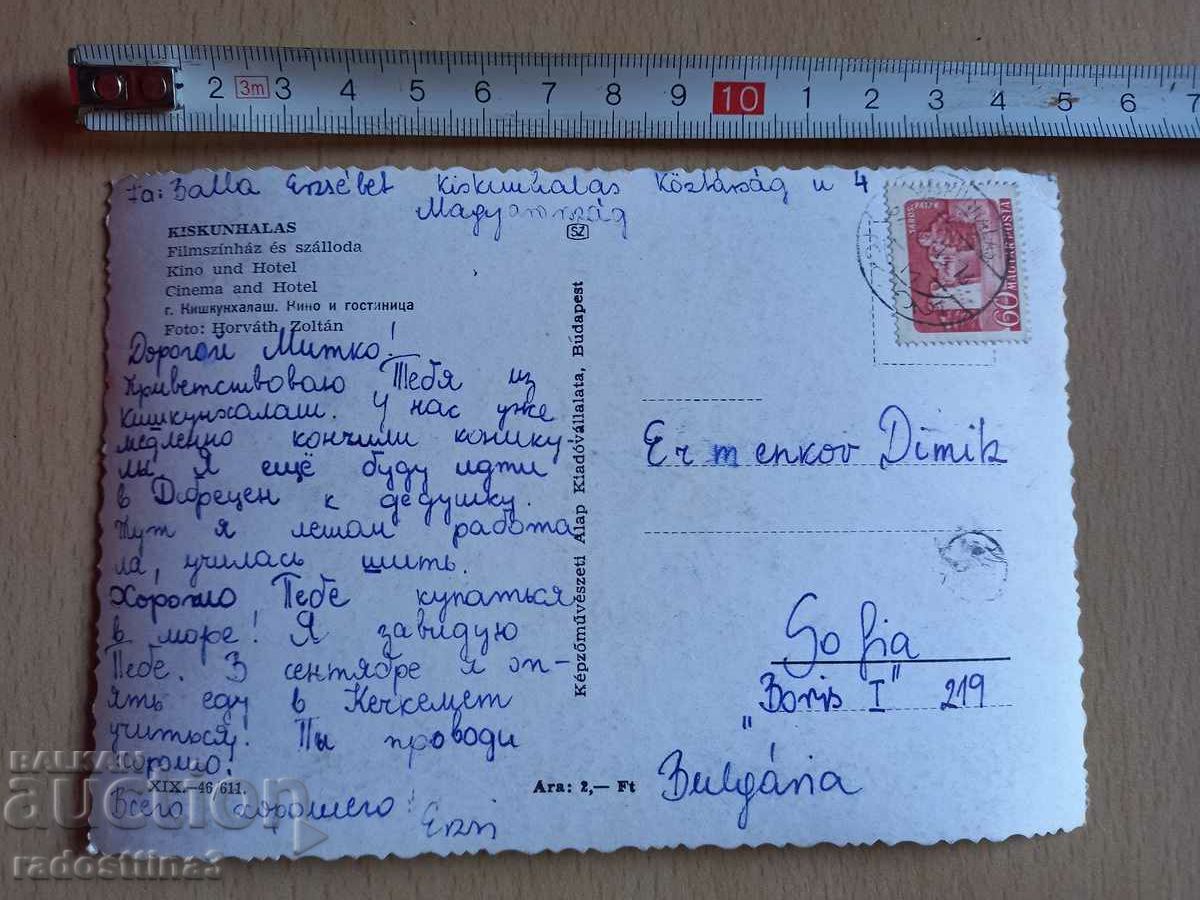 2 3m 3 4 5 6 7 8 9 10 1 2 3 4 5 6 7
fa: Balla Erzsébet Kiskunhalas Köztárság u 4
Magyarország
KISKUNHALAS
Filmszínház és szálloda
Kino und Hotel
Cinema and Hotel
г. Кишкунхалаш. Кино и гостиница
Foto: Horváth Zoltán
SZ
60 MAGYAR POSTA
Дорогой Митко!
Приветствоваю Тебя из
Кишкунхалаш. У нас уже
медленно кончили каникy
лы. Я ещё буду идти
в Дебрецен к дедушку.
Тут я летом работа
ла, училась шить.
Хорошо Тебе купаться
в море! Я завидую
Тебе. В сентябре я оп-
ять еду в Кечкемет
учиться! Ты проводи
хорошо!
Всего хорошего!
Erzsi
XIX.-46/611.
Ara: 2,— Ft
Képzőművészeti Alap Kiadóvállalata, Budapest
Ermenkov Dimit
Sofia
"Boris I" 219
Bulgária
BALKAN
auction
radosttina3